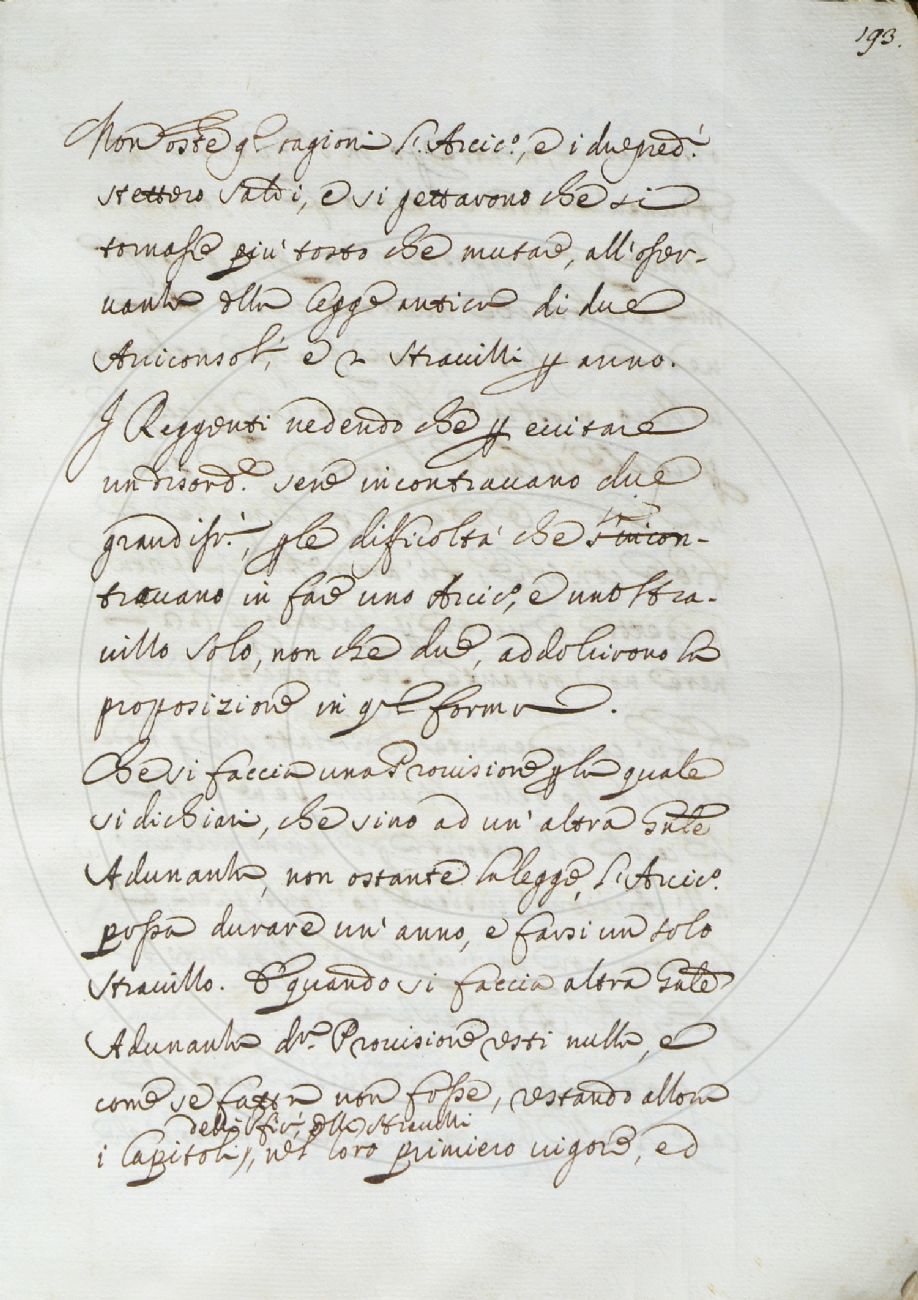 193.
Non oste q.li ragioni l'Arcic.o, e i due pred.i
stettero saldi, e si gettavono che si
tornasse più tosto che mutare, all'osser-
uanza della legge antica di due
Arciconsoli, e 2 Stravizzi p anno.
I Reggenti uedendo che p euitare
un disord.e sene incontrauano due
grandiss.i, p le difficoltà che s'incon-
trauano in fare uno Arcic.o, e uno Stra-
uizzo solo, non che due, addolcirono la
proposizione in q.ta forma.
Che si faccia una Prouisione p la quale
si dichiari, che sino ad un'altra Gnle
Adunanza, non ostante la legge, l'Arcic.o
possa durare un'anno, e farsi un solo
Strauizzo. E quando si faccia altra Gnle
Adunanza d.a Prouisione resti nulla, e
come se fatta non fosse, restando allora
delli Ufizi, e delli Stravizzi
i Capitoli, nel loro primiero uigore, ed